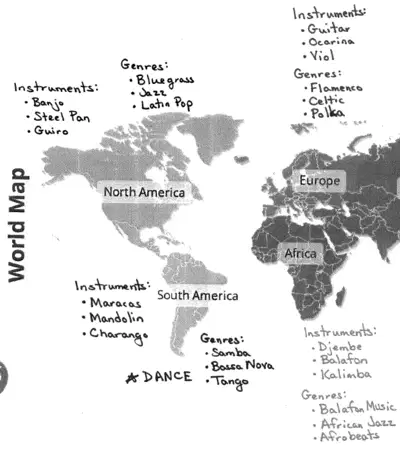 Instruments:
• Guitar
• Ocarina
• Viol
Genres:
• Flamenco
• Celtic
• Polka
Genres:
• Bluegrass
• Jazz
• Latin Pop
Instruments:
• Banjo
• Steel Pan
• Guiro
World Map
North America
Europe
Africa
South America
Instruments:
• Maracas
• Mandolin
• Charango
Genres:
• Samba
• Bossa Nova
• Tango
* DANCE
Instruments:
• Djembe
• Balafon
• Kalimba
Genres:
• Balafon Music
• African Jazz
• Afrobeats